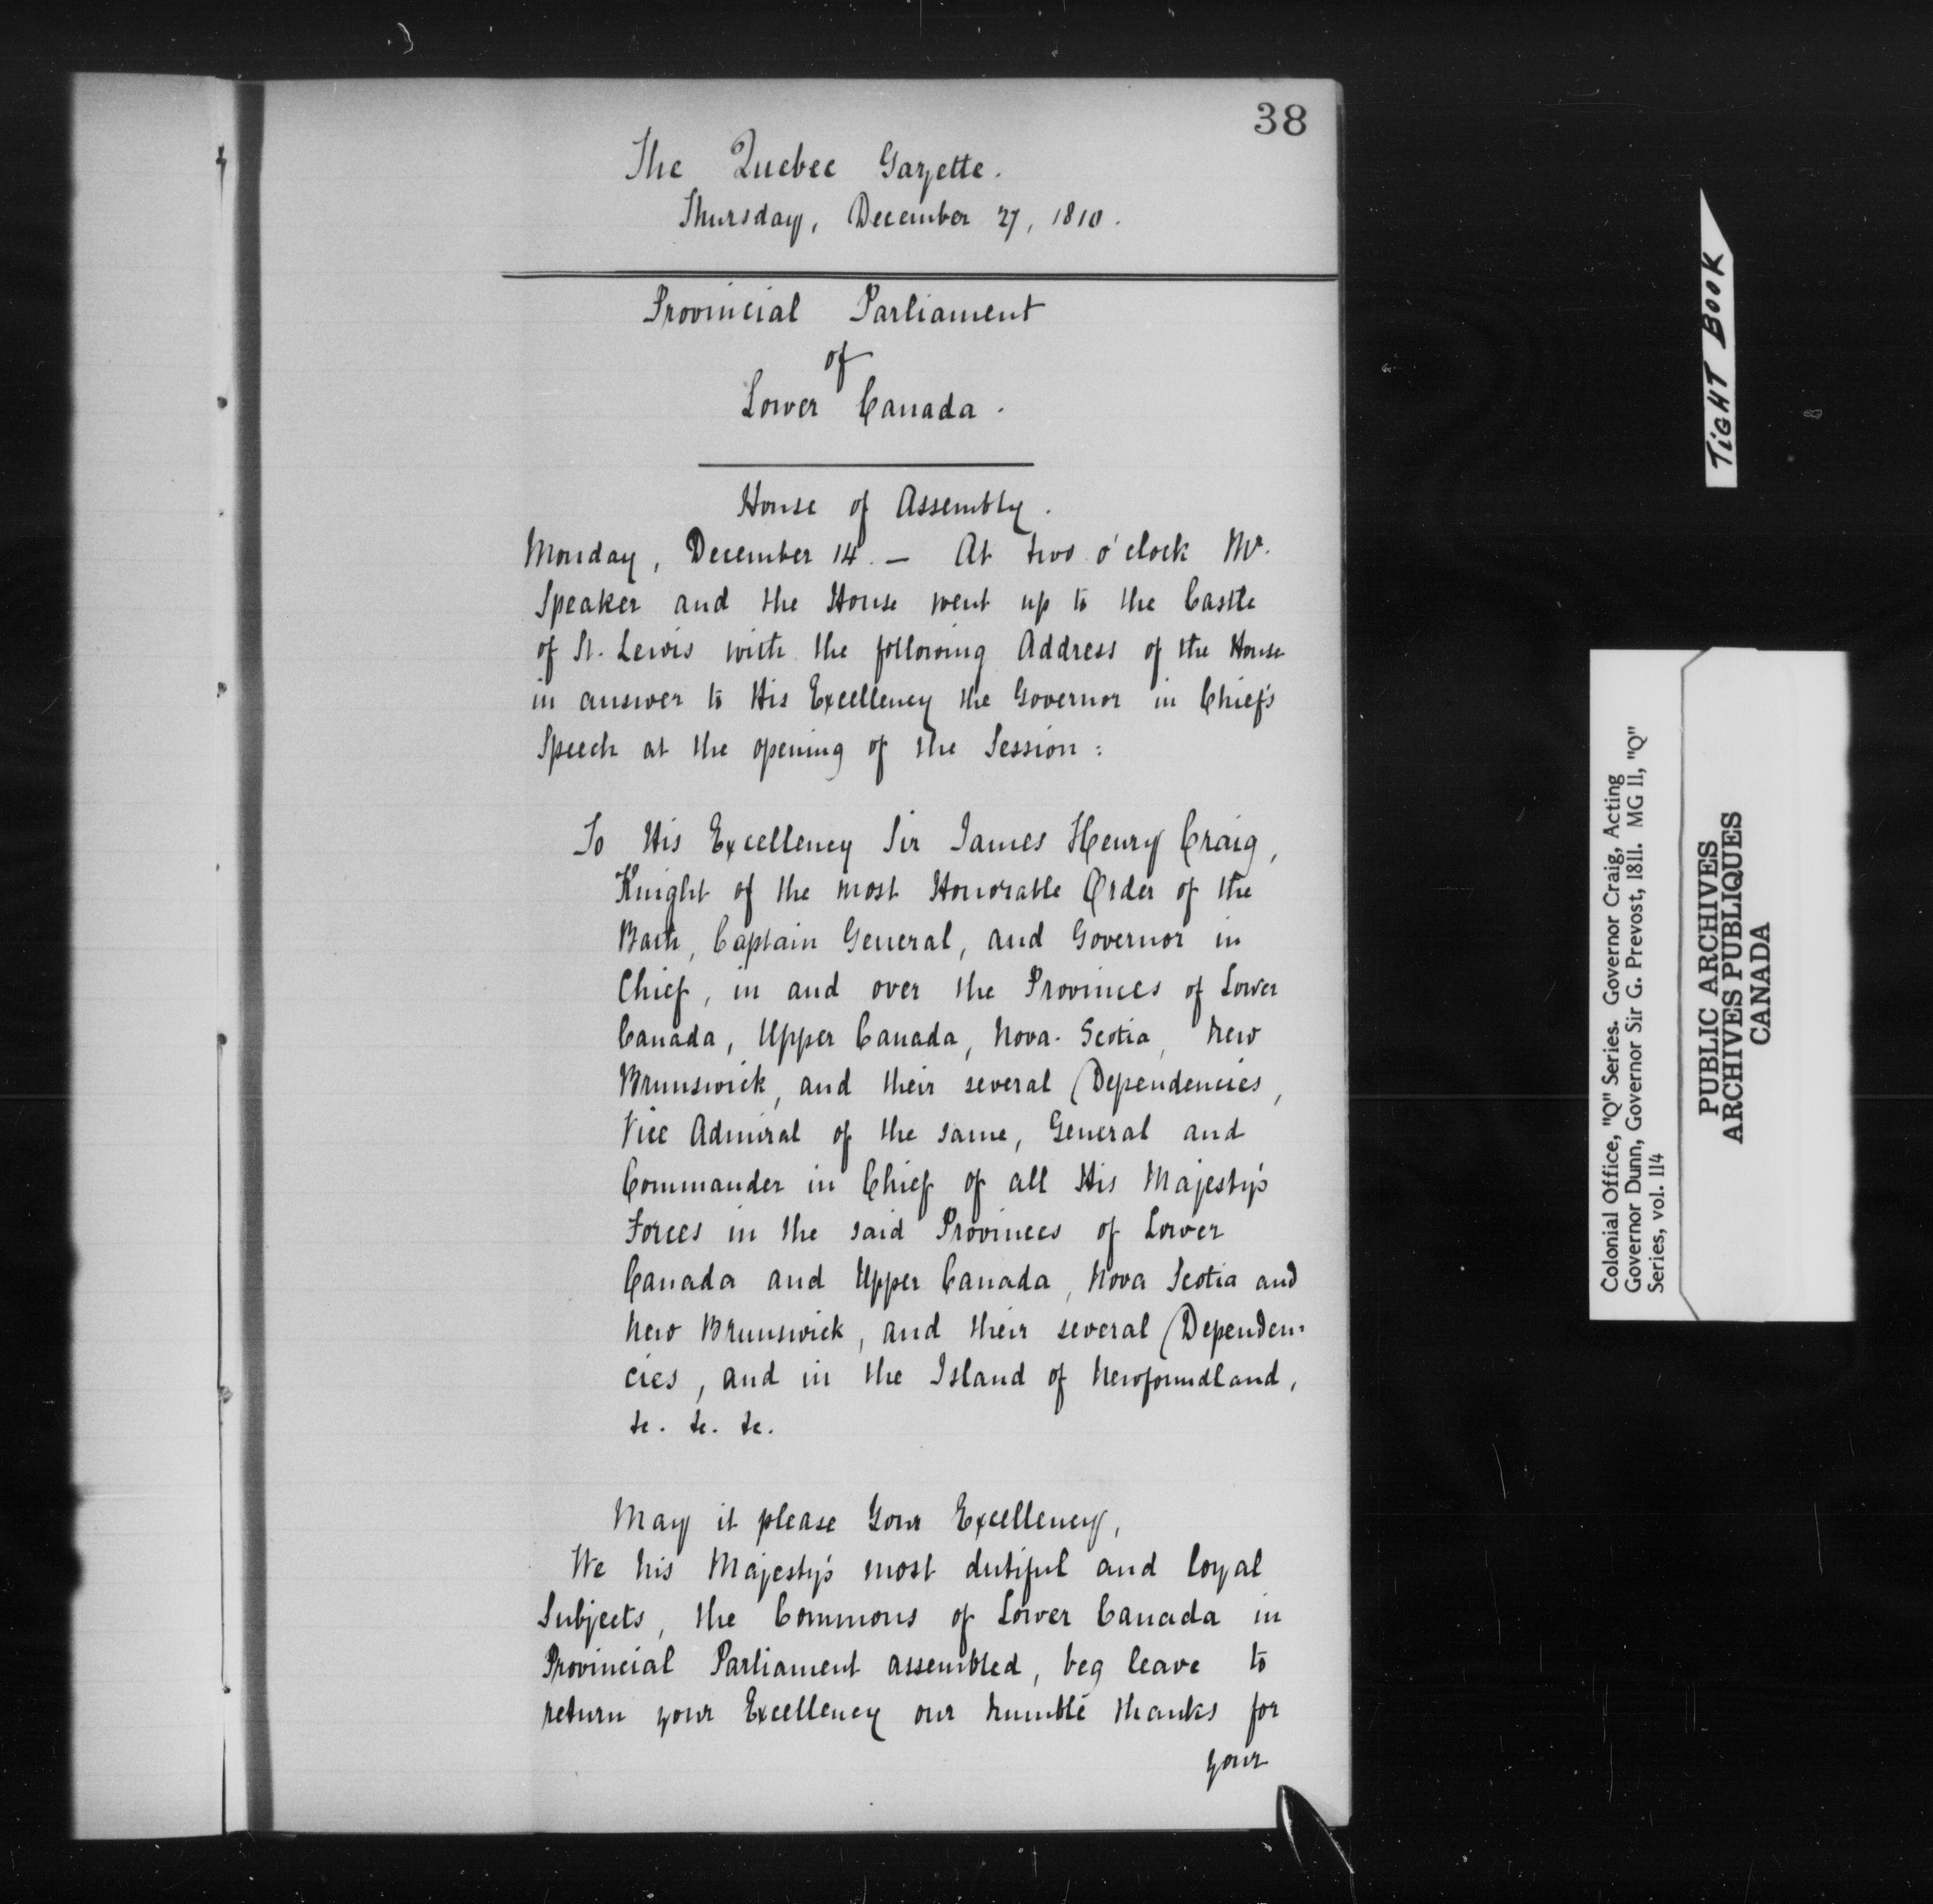 38
The Quebec Gazette.
Thursday, December 27, 1810.
Provincial Parliament
of
Lower Canada.
House of Assembly.
Monday, December 14. — At two o'clock Mr.
Speaker and the House went up to the Castle
of St. Lewis with the following Address of the House
in answer to His Excellency the Governor in Chief's
Speech at the opening of the Session:
To His Excellency Sir James Henry Craig,
Knight of the most Honorable Order of the
Bath, Captain General, and Governor in
Chief, in and over the Provinces of Lower
Canada, Upper Canada, Nova-Scotia, New
Brunswick, and their several Dependencies,
Vice Admiral of the same, General and
Commander in Chief of all His Majesty's
Forces in the said Provinces of Lower
Canada and Upper Canada, Nova Scotia and
New Brunswick, and their several Dependen-
cies, and in the Island of Newfoundland,
&c. &c. &c.
May it please Your Excellency,
We his Majesty's most dutiful and loyal
Subjects, the Commons of Lower Canada in
Provincial Parliament assembled, beg leave to
return your Excellency our humble thanks for
your
TIGHT BOOK
Colonial Office, "Q" Series. Governor Craig, Acting
Governor Dunn, Governor Sir G. Prevost, 1811. MG 11, "Q"
Series, vol. 114
PUBLIC ARCHIVES
ARCHIVES PUBLIQUES
CANADA